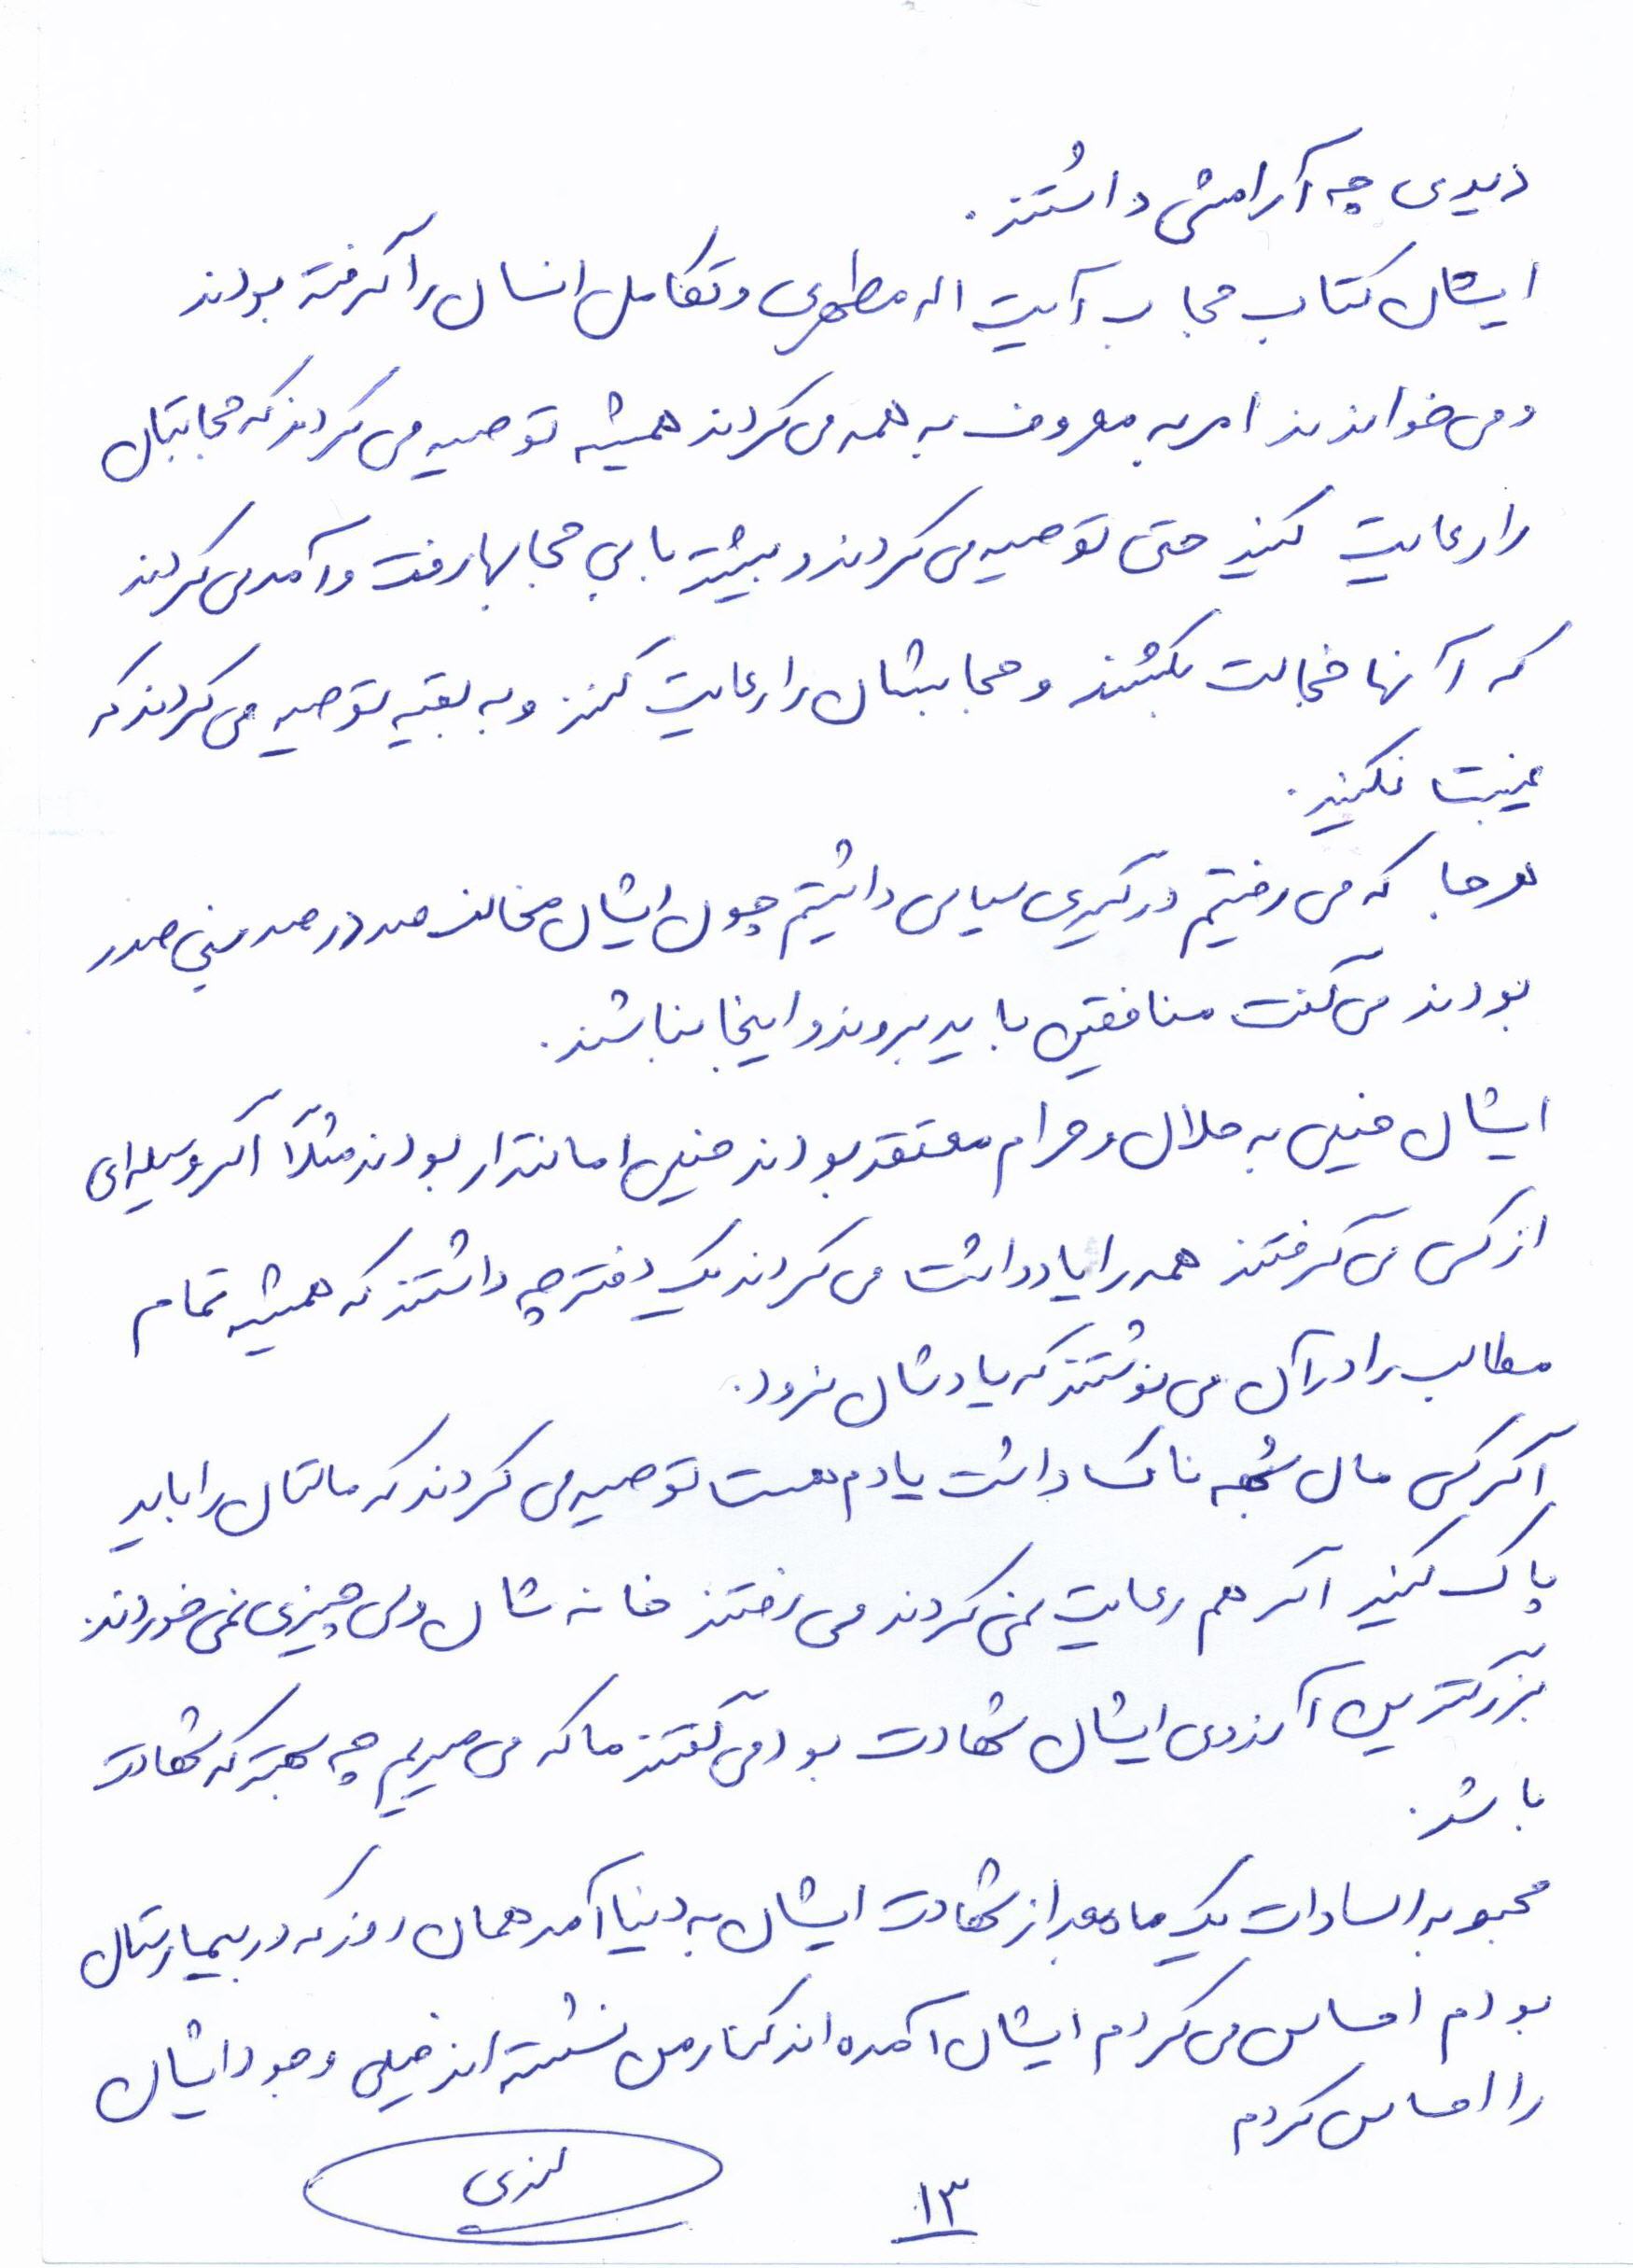 دیدی چه آرامشی داشتند.
ایشان کتاب حجاب آیت اله مطهری و تکامل انسان را گرفته بودند
و می خواندند امر به معروف به همه می کردند همیشه توصیه می کردند که حجابتان
را رعایت کنید حتی توصیه می کردند و بیشتر با بی حجابها رفت و آمد می کردند
که آنها خجالت بکشند و حجابشان را رعایت کنند و به بقیه توصیه می کردند که
غیبت نکنید.
هر جا که می رفتیم درگیری سیاسی داشتیم چون ایشان مخالف صد در صد بنی صدر
بودند می گفت منافقین باید بروند و اینجا نباشند.
ایشان خیلی به حلال و حرام معتقد بودند خیلی امانتدار بودند مثلاً اگر وسیله ای
از کسی می گرفتند همه را یادداشت می کردند یک دفترچه داشتند که همیشه تمام
مطالب را در آن می نوشتند که یادشان نرود.
اگر کسی مال شبهه ناک داشت یادم هست توصیه می کردند که مالتان را باید
پاک کنید اگر هم رعایت نمی کردند می رفتند خانه شان ولی چیزی نمی خوردند.
بزرگترین آرزوی ایشان شهادت بود می گفتند ما که می میریم چه بهتر که شهادت
باشد.
محبوبه السادات یک ماه بعد از شهادت ایشان به دنیا آمد همان روز که در بیمارستان
بودم احساس می کردم ایشان آمده اند کنار من نشسته اند خیلی وجود ایشان
را احساس کردم
۱۳